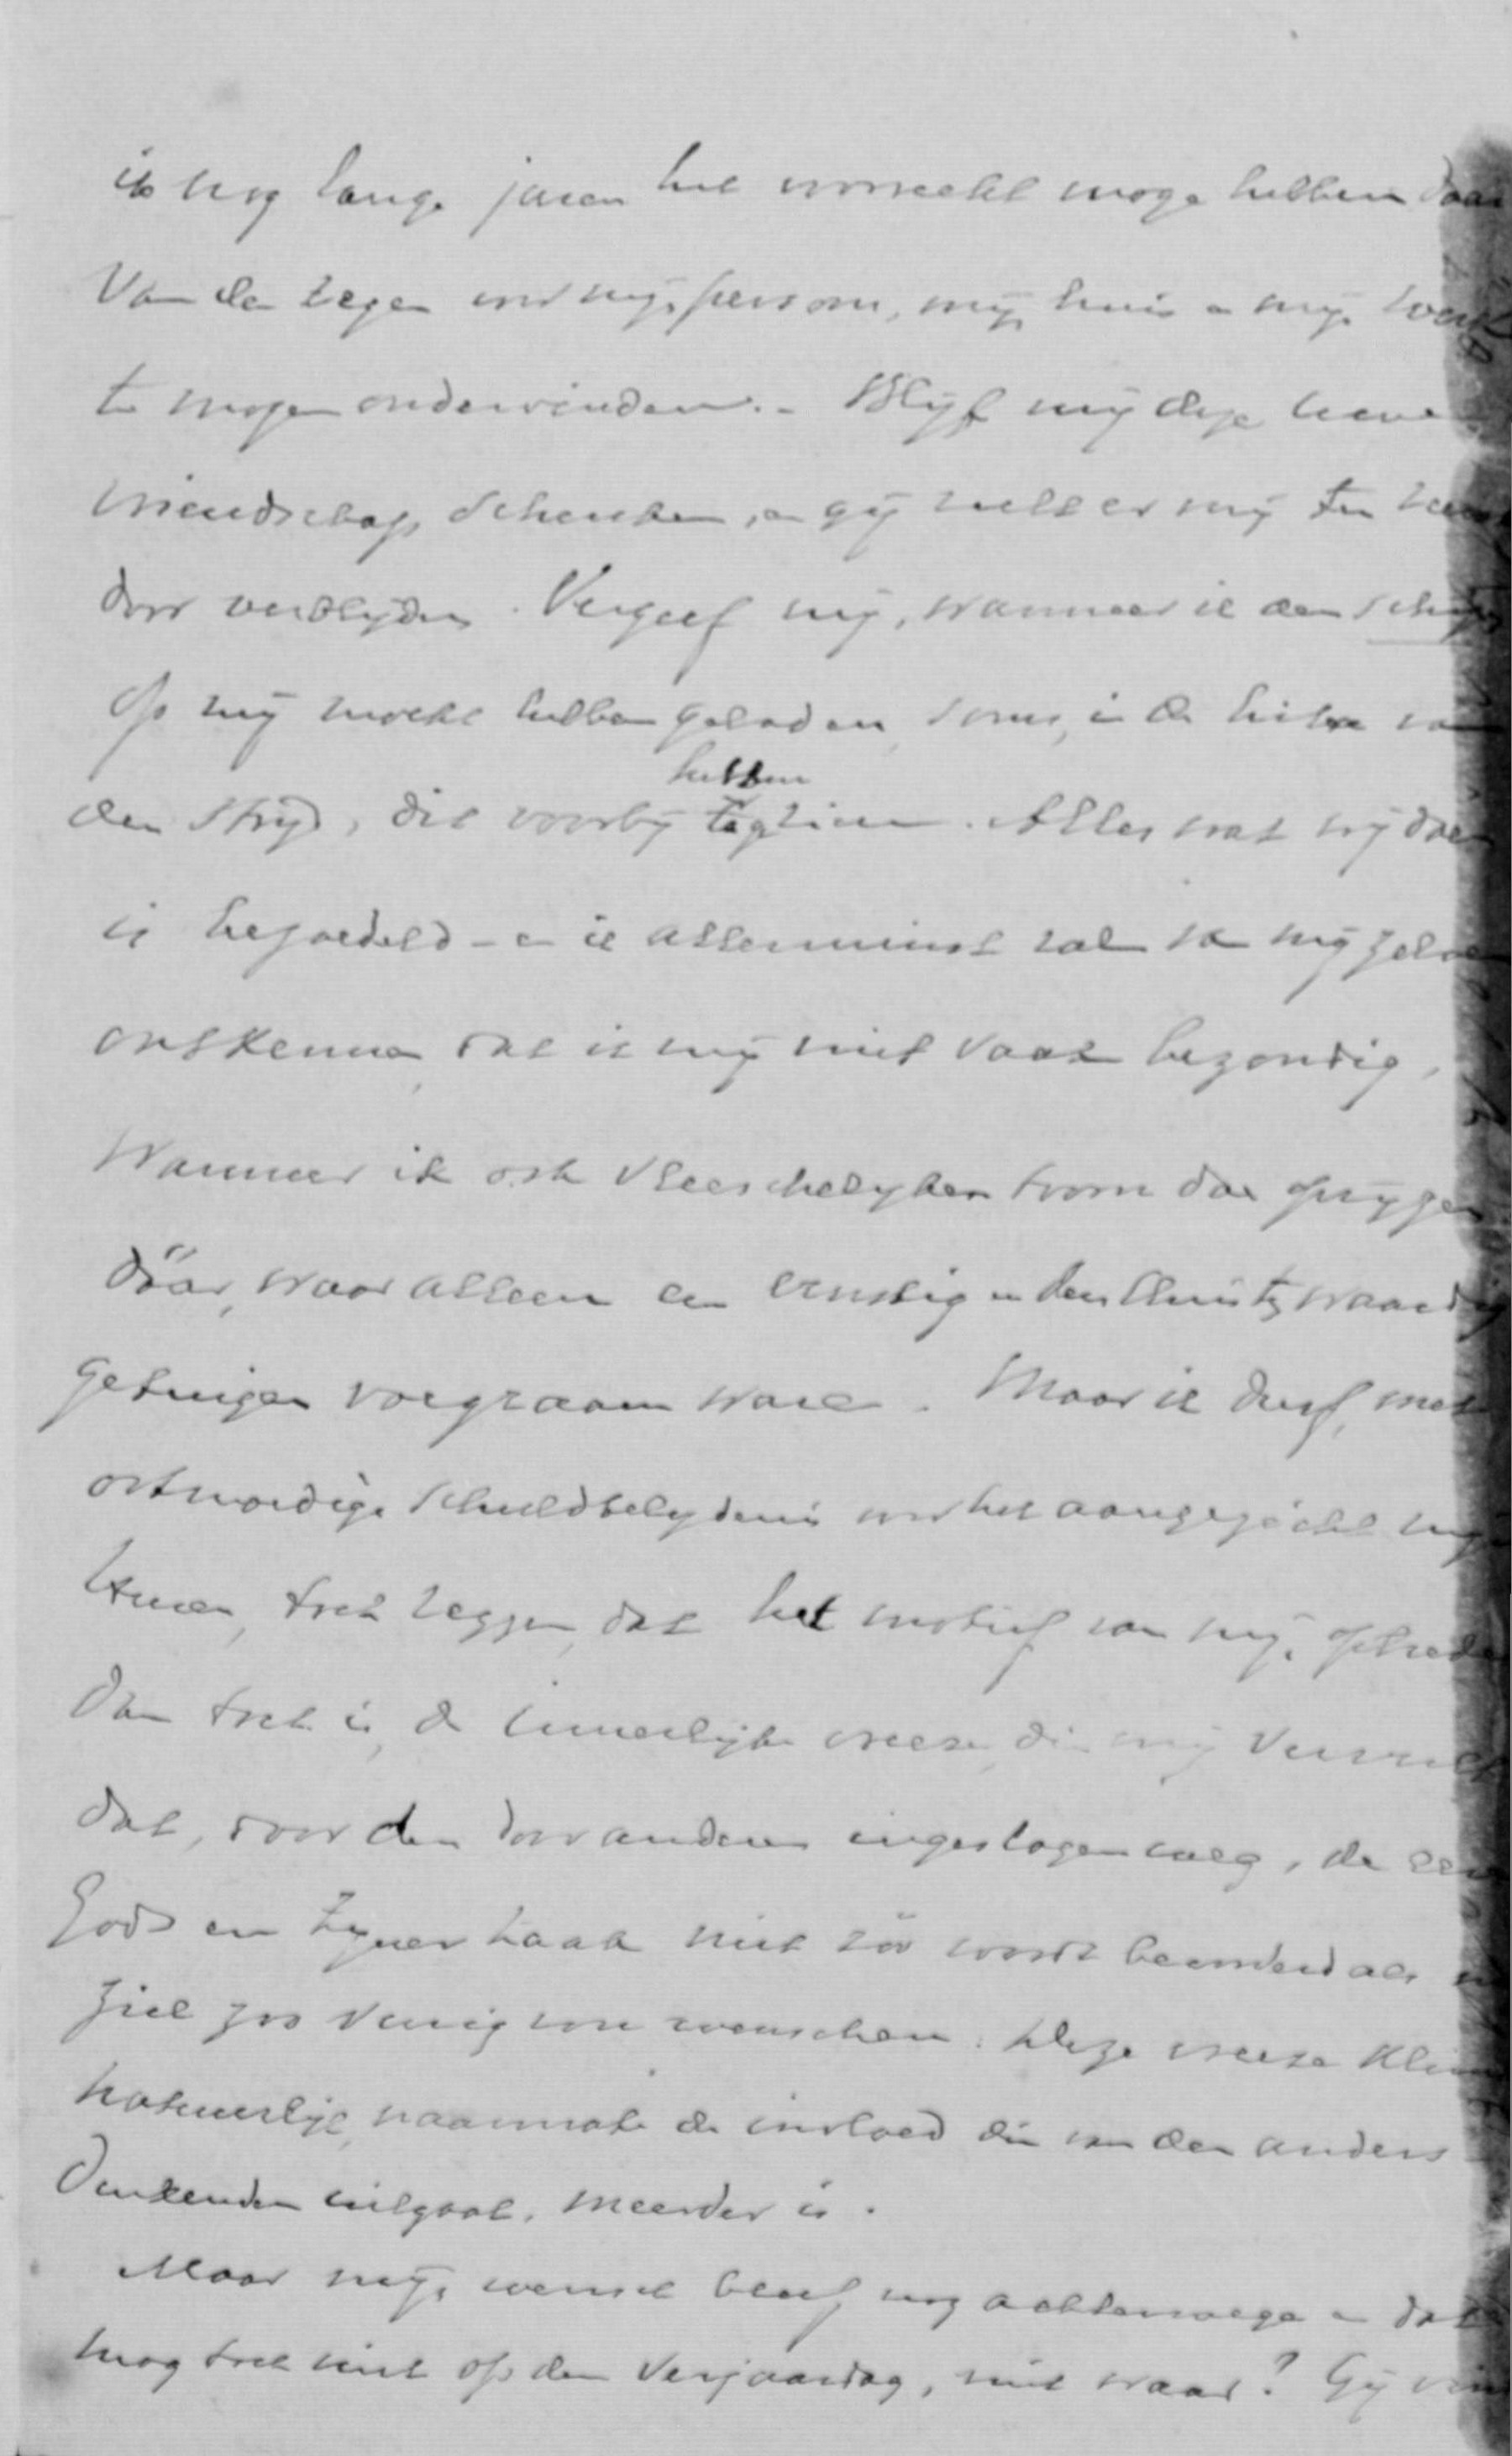 ik nog lange jaren het voorrecht moge hebben daar
van den zegen voor mijn persoon, mijn huis en mijn werk
te mogen ondervinden. - Blijf mij deze
vriendschap schenken, en gij zult er mij ten
door verblijden. Vergeef mij, wanneer ik den schijn
op mij mocht hebben geladen, soms, in de hitte van
den strijd, dit voorbij hebben te zien. Alles wat wij doen
is bezoedeld - en ik allerminst zal het mij zelven
ontkennen, dat ik mij niet vaak bezondig,
wanneer ik ook vleeschelijken toorn doe
dáár, waar alleen een ernstig en den Christ waardig
getuigen voegzaam ware. Maar ik durf, met
ootmoedige schuldbelijdenis voor het
toch zeggen, dat het motief van mijn optreden
dan toch is, de innerlijke vreeze, die mij vervult
dat, door den door anderen ingeslagen weg, de eer
Gods en Zijner zaak niet zóó wordt bevorderd als
ziel zoo vurig zou wenschen. Deze vreeze klimt
natuurlijk, naarmate de invloed die van den anders
denkenden uitgaat, meerder is.
Maar mijn wensch bleef nog achterwege en dat
mag toch niet op den verjaardag, niet waar? Gij